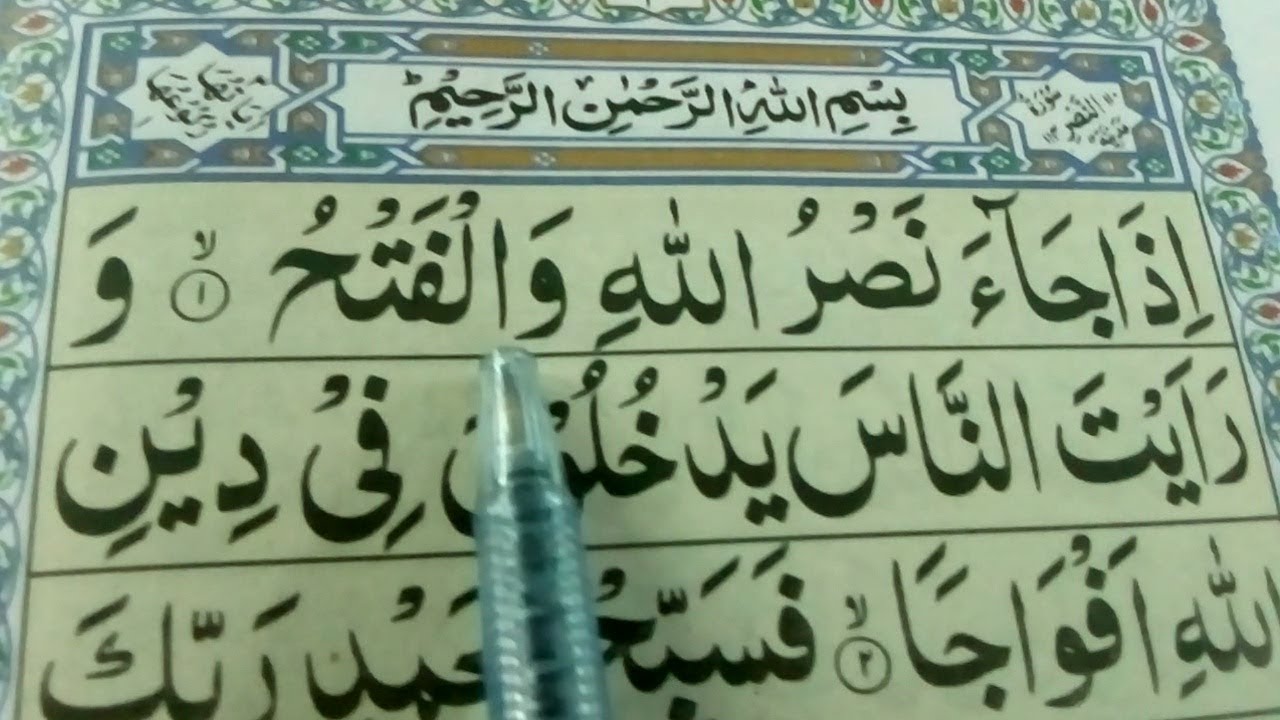 سُوْرَةُ النَّصْرِ مَدَنِيَّةٌ
بِسْمِ اللّٰهِ الرَّحْمٰنِ الرَّحِيْمِ
اِذَا جَآءَ نَصْرُ اللّٰهِ وَالْفَتْحُ ۙ﴿۱﴾ وَ
رَاَيْتَ النَّاسَ يَدْخُلُوْنَ فِيْ دِيْنِ
اللّٰهِ اَفْوَاجًا ۙ﴿۲﴾ فَسَبِّحْ بِحَمْدِ رَبِّكَ